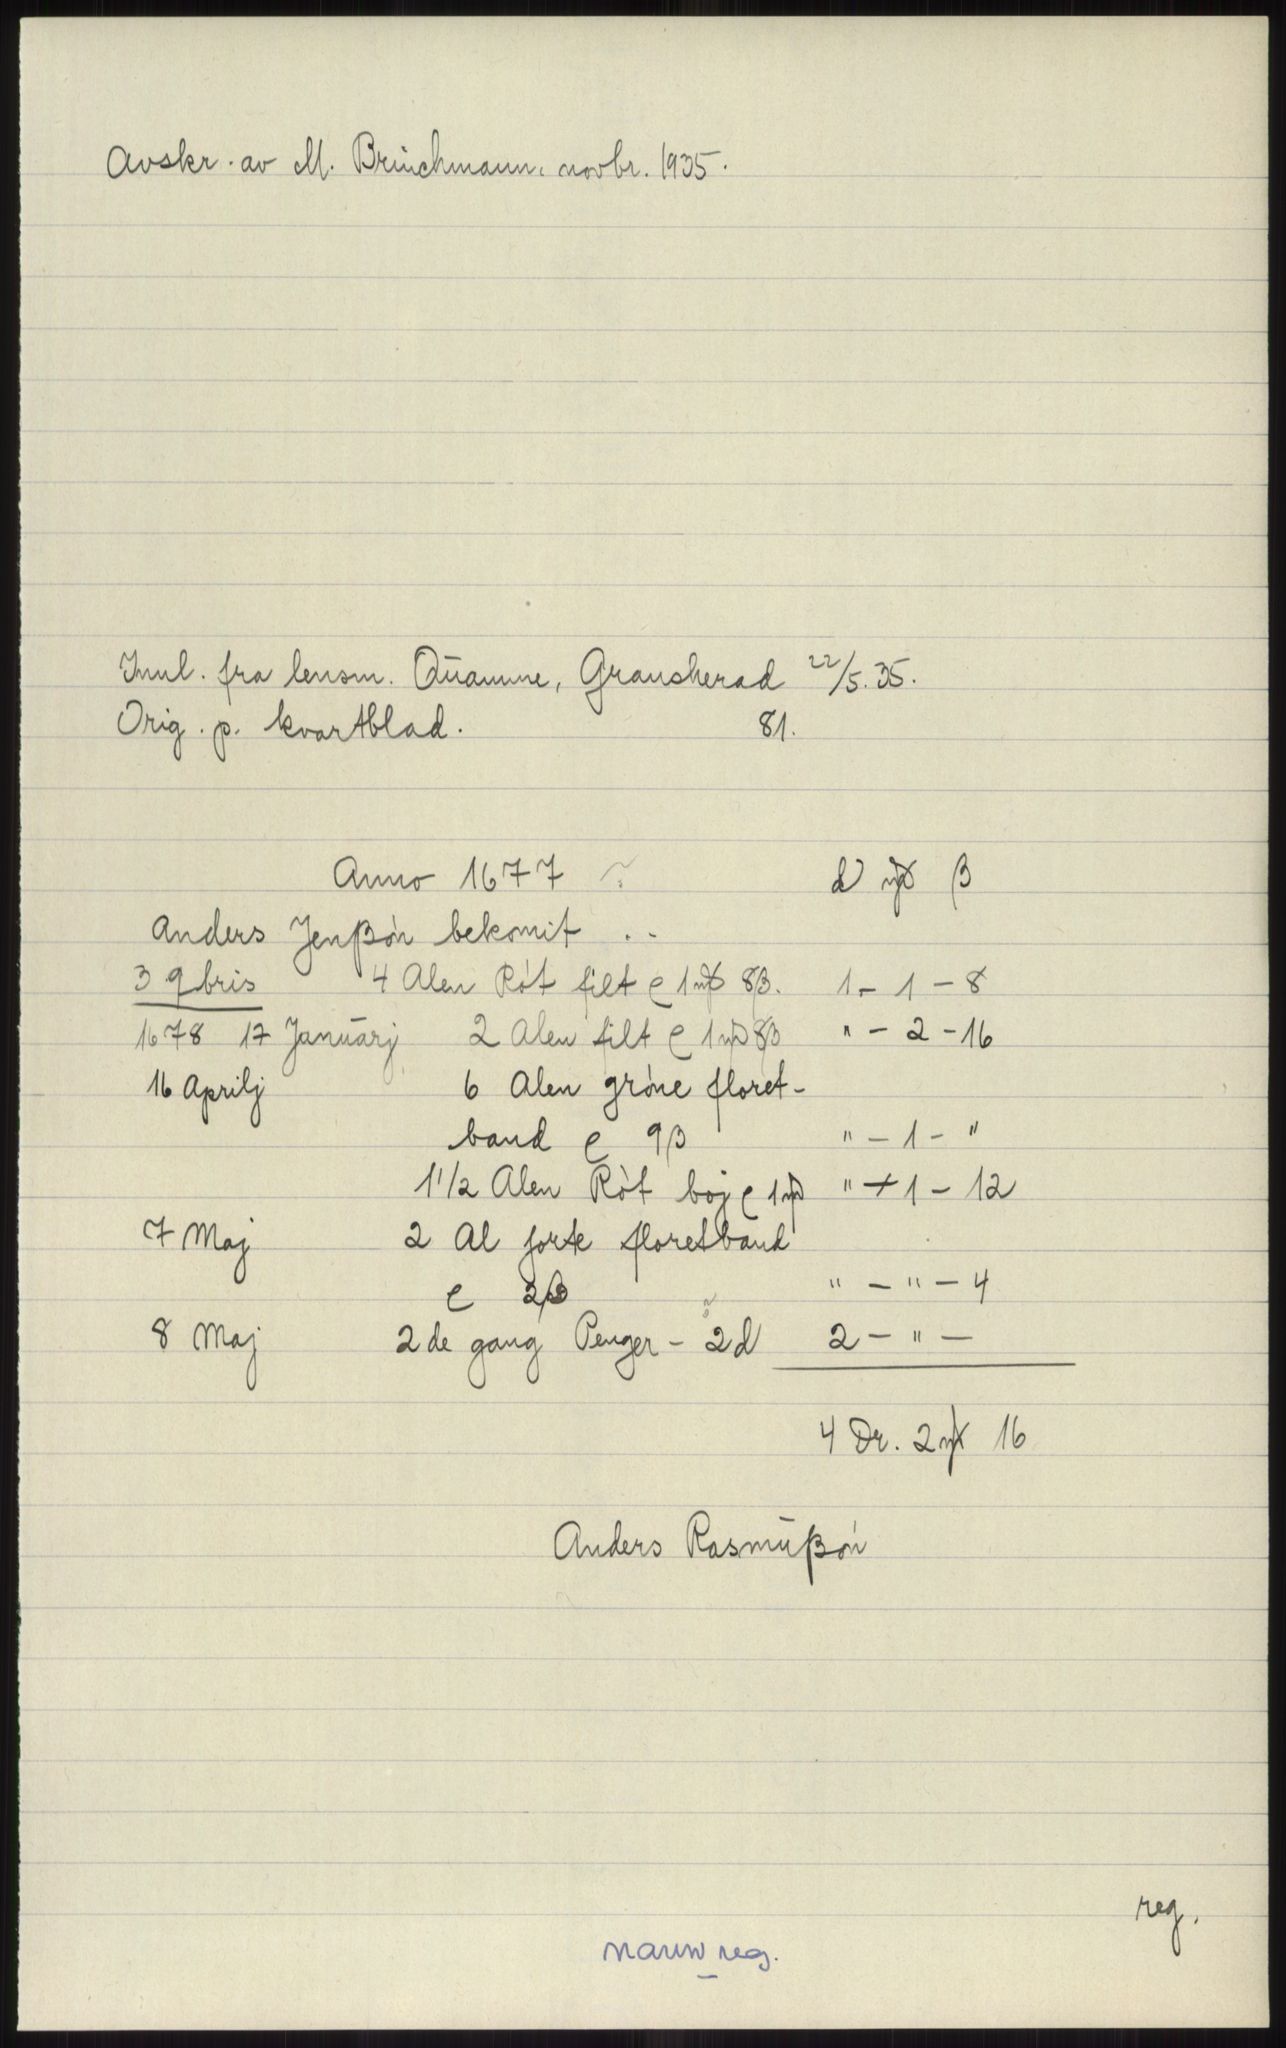 Avskr. av M. Brinchmann. novbr. 1935.
Innl. fra lensm. Qūamme, Gransherad 22/5. 35.
Orig. p. kvartblad. 81.
Anno 1677 d mꝅ β
Anders Jenßön bekomit ..
3 9bris 4 Alen Röt filt e 1 mꝅ 8β. 1 - 1 - 8
1678 17 Janūarj 2 Alen filt e 1 mꝅ 8β " - 2 - 16
16 Aprilj 6 Alen gröne floret-
band e 9β " - 1 - "
1 1/2 Alen Röt boj e 1 mꝅ " - 1 - 12
7 Maj 2 Al sorte floretband
e 2β " - " - 4
8 Maj 2 de gang Penger - 2d 2 - " -
4 Dr. 2 mꝅ 16
Anders Rasmūßön
reg.
navnreg.